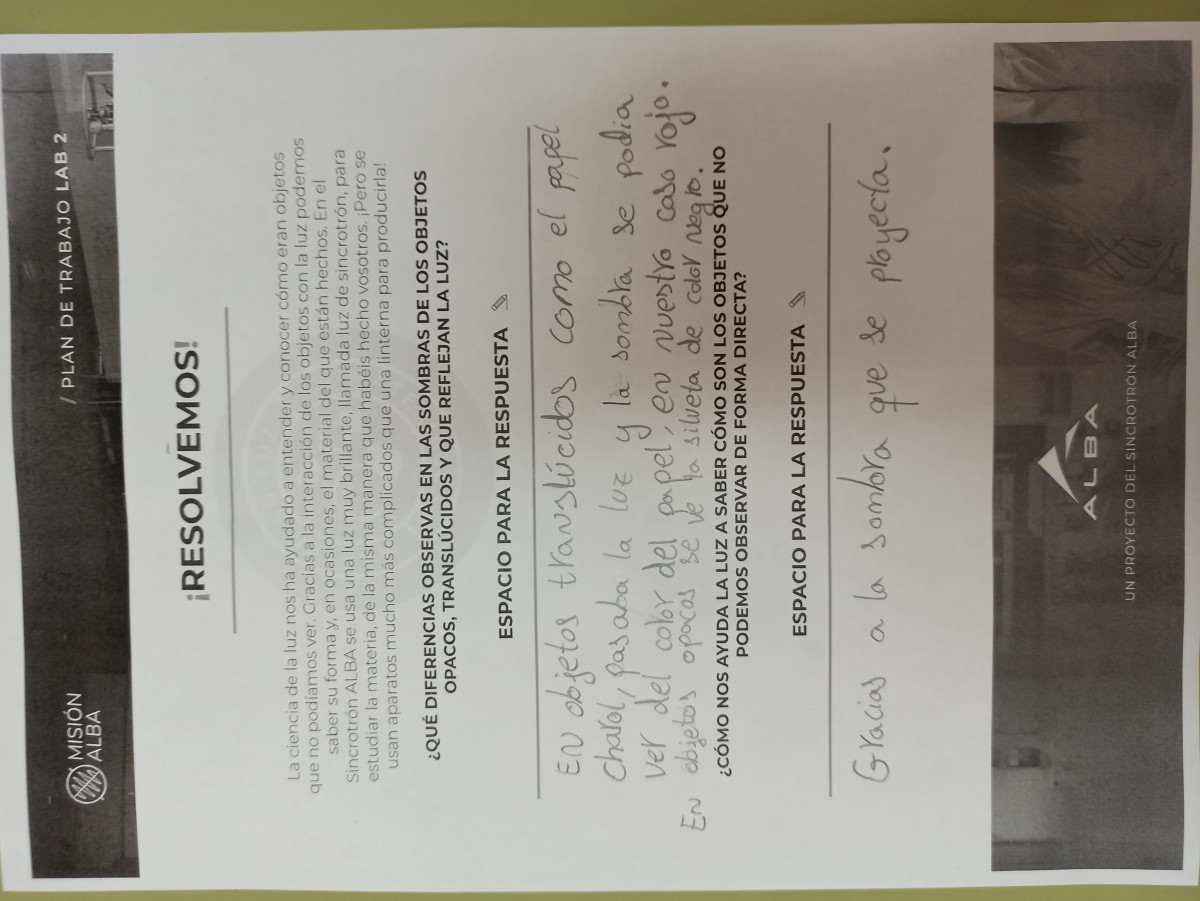 MISIÓN
ALBA
/ PLAN DE TRABAJO LAB 2
¡RESOLVEMOS!
La ciencia de la luz nos ha ayudado a entender y conocer cómo eran objetos
que no podíamos ver. Gracias a la interacción de los objetos con la luz podemos
saber su forma y, en ocasiones, el material del que están hechos. En el
Sincrotrón ALBA se usa una luz muy brillante, llamada luz de sincrotrón, para
estudiar la materia, de la misma manera que habéis hecho vosotros. ¡Pero se
usan aparatos mucho más complicados que una linterna para producirla!
¿QUÉ DIFERENCIAS OBSERVAS EN LAS SOMBRAS DE LOS OBJETOS
OPACOS, TRANSLÚCIDOS Y QUE REFLEJAN LA LUZ?
ESPACIO PARA LA RESPUESTA
EN objetos translúcidos como el papel
charol, pasaba la luz y la sombra se podia
ver del color del papel, en nuestro caso rojo.
En objetos opacos se ve la silveta de color negro.
¿CÓMO NOS AYUDA LA LUZ A SABER CÓMO SON LOS OBJETOS QUE NO
PODEMOS OBSERVAR DE FORMA DIRECTA?
ESPACIO PARA LA RESPUESTA
Gracias a la sombra que se proyecta.
ALBA
UN PROYECTO DEL SINCROTRÓN ALBA